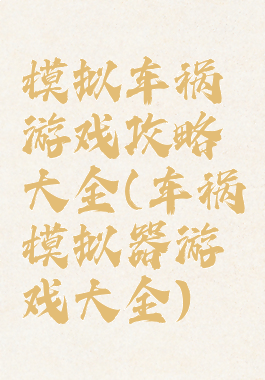 模拟车祸
游戏攻略
大全(车祸
模拟器游
戏大全)